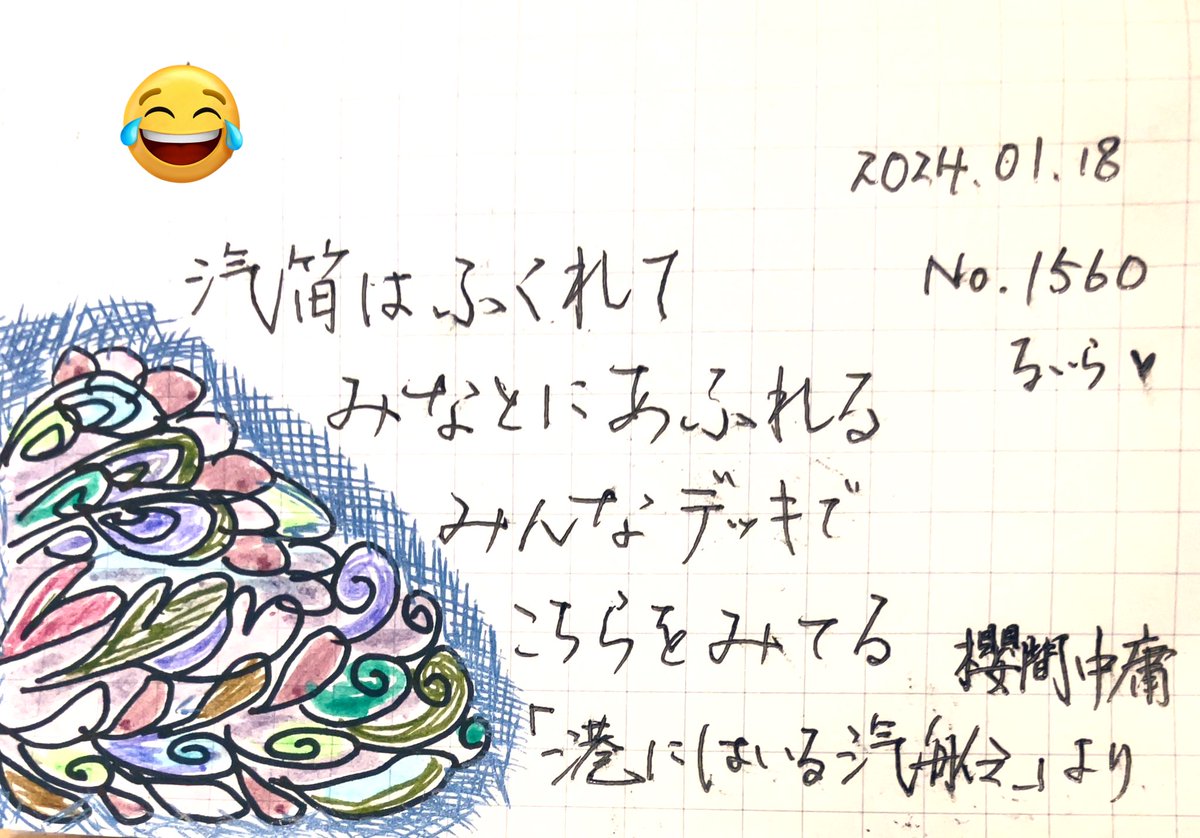 2024.01.18
No.1560
るいら♥
汽笛はふくれて
みなとにあふれる
みんなデッキで
こちらをみてる
櫻間中庸
「港にはいる汽船」より